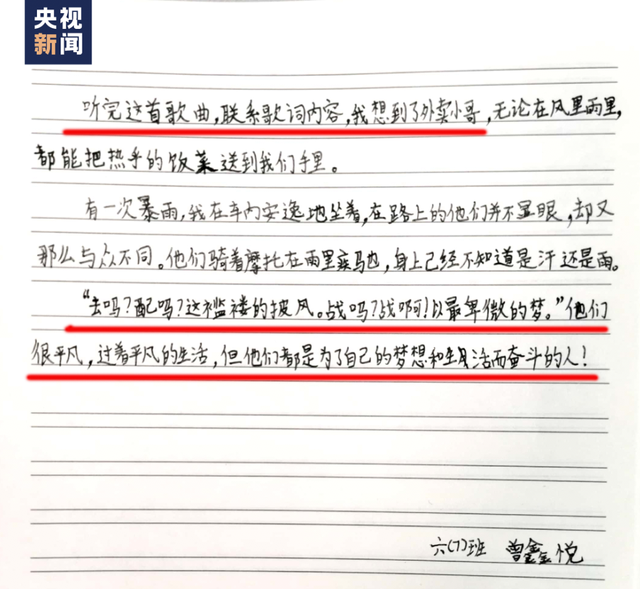 央视
新闻
听完这首歌曲,联系歌词内容,我想到了外卖小哥,无论在风里雨里,
都能把热乎的饭菜送到我们手里。
有一次暴雨,我在车内安逸地坐着,在路上的他们并不显眼,却又
那么与众不同。他们骑着摩托在雨里疾驰,身上已经不知道是汗还是雨。
“去吗?配吗?这褴褛的披风。战吗?战啊!以最卑微的梦。”他们
很平凡,过着平凡的生活,但他们都是为了自己的梦想和生活而奋斗的人!
六(7)班 曾鑫悦